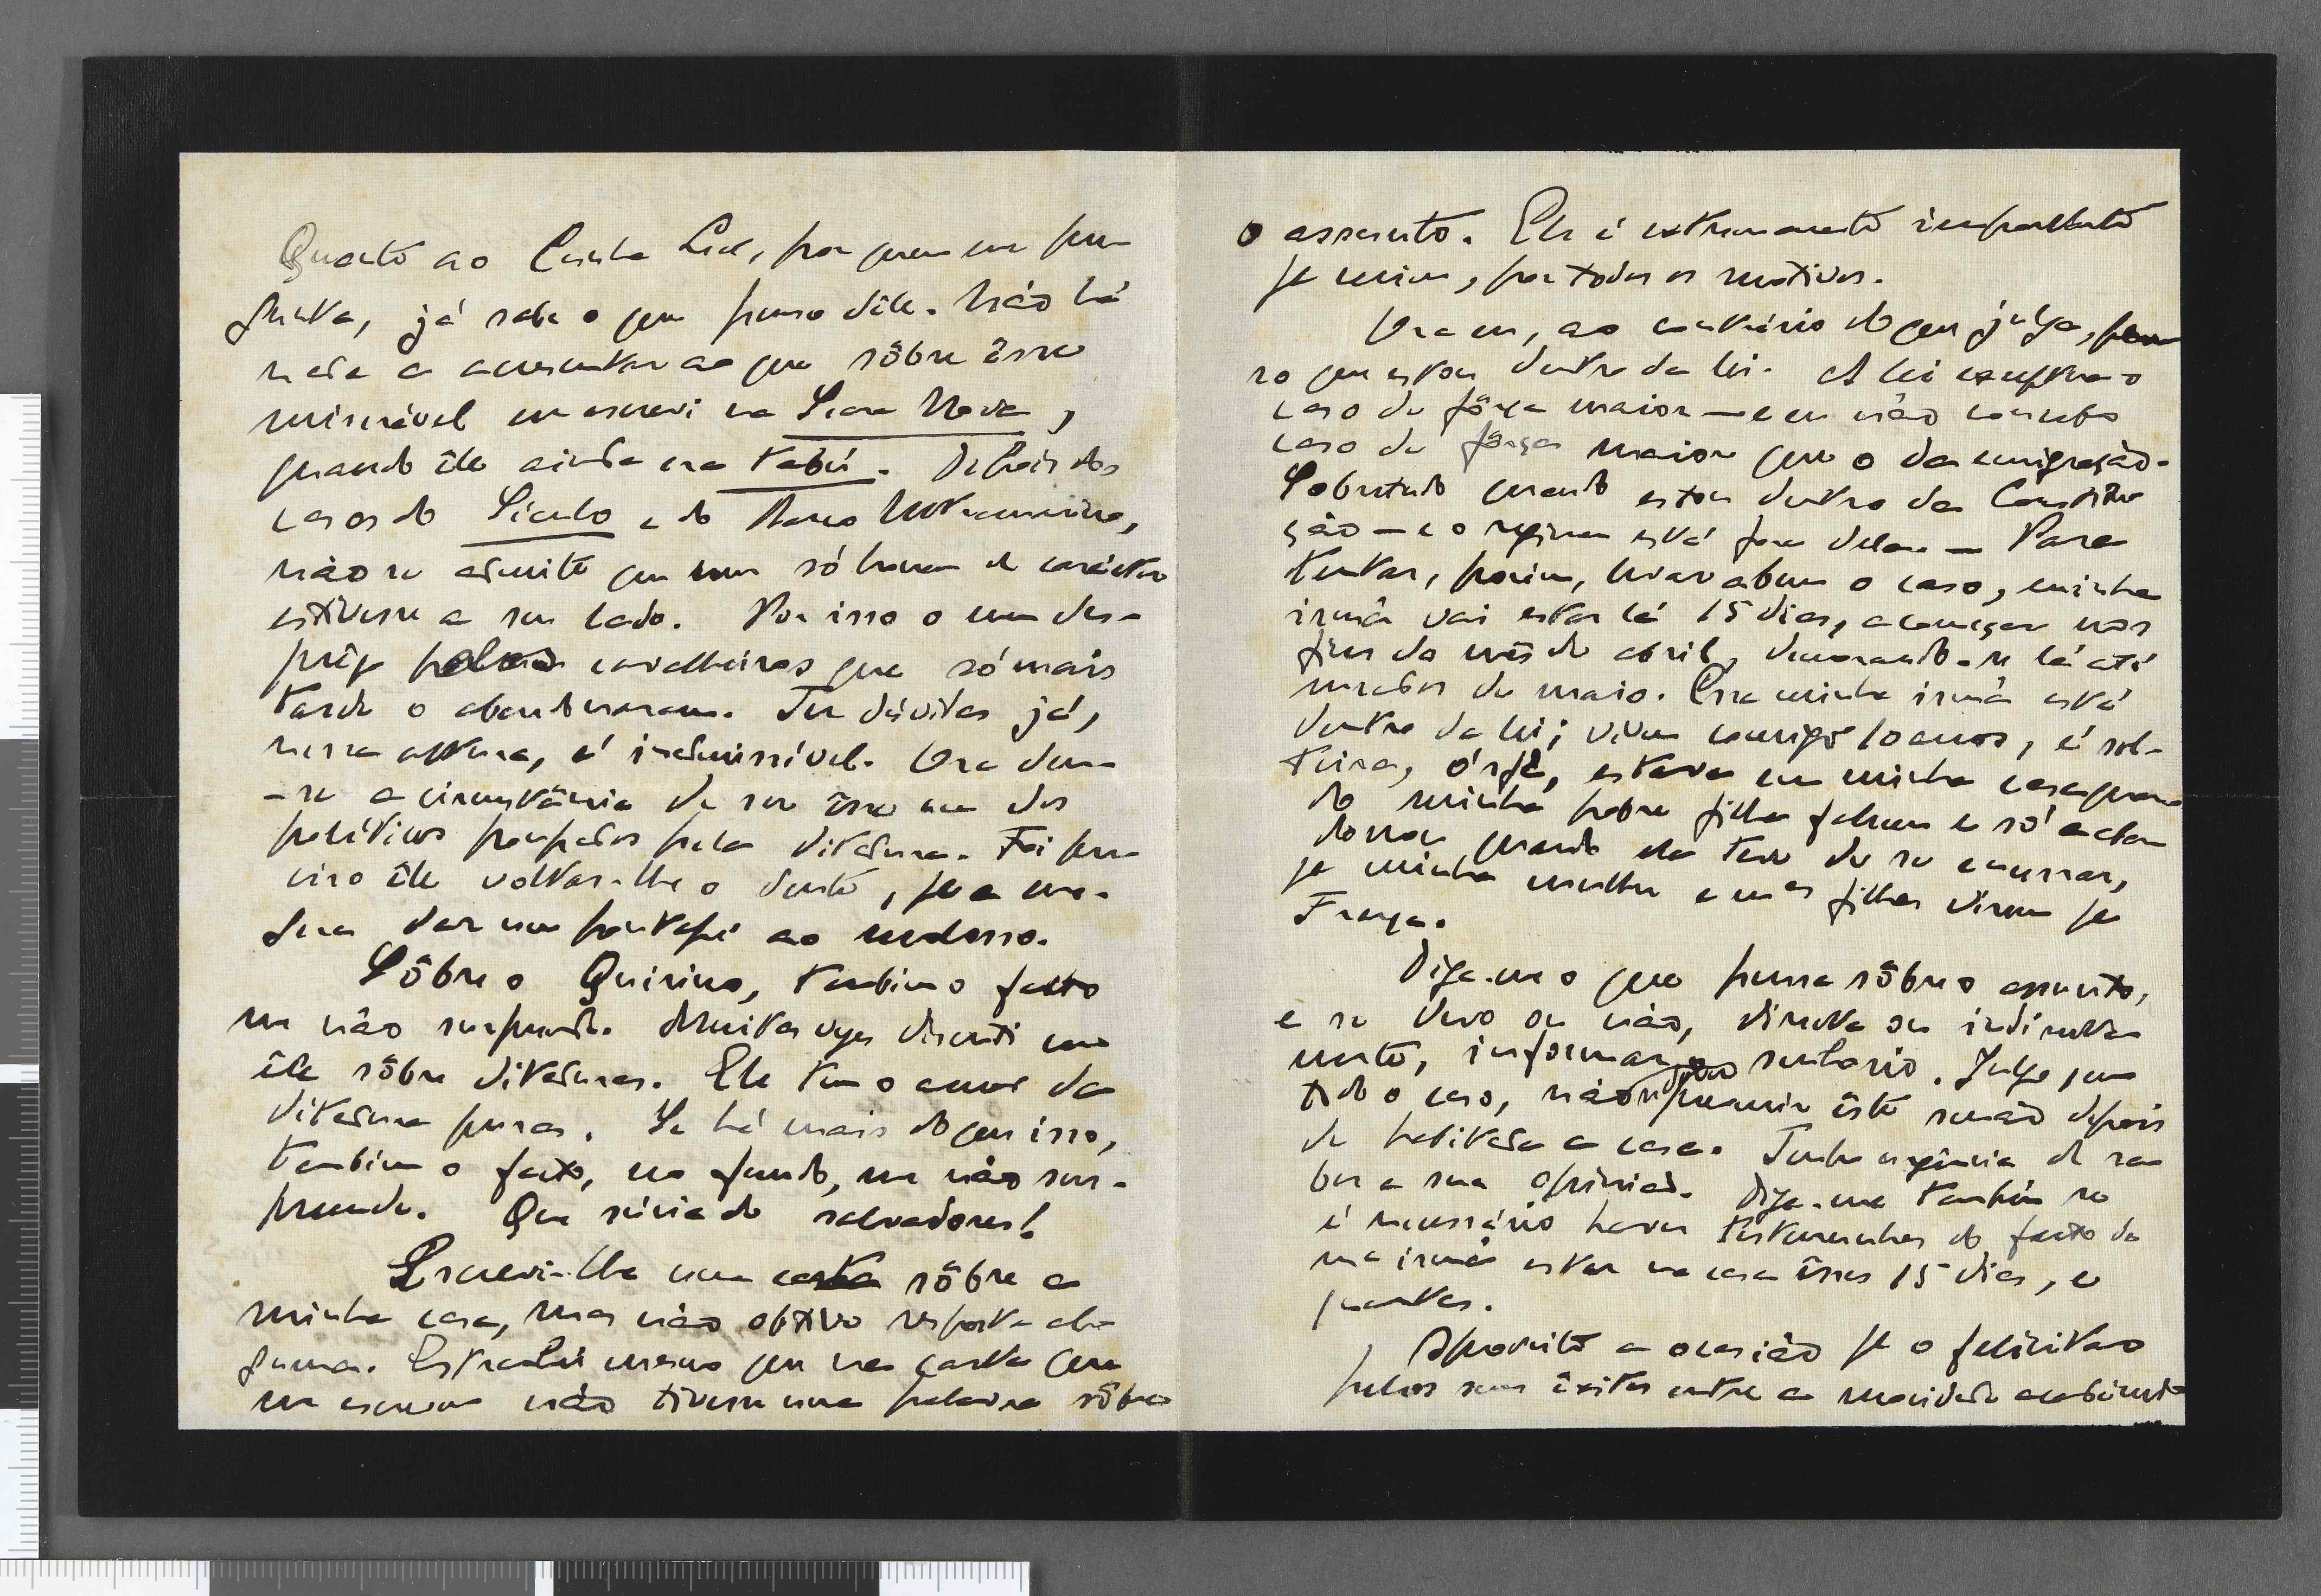 Quanto ao Cunha Leal, por quem me per-
gunta, já sabe o que penso dêle. Não há
nada a acrescentar ao que sôbre êsse
miserável eu escrevi na Seara Nova,
quando êle ainda era tabú. Depois dos
casos do Século e do Banco Ultramarino,
não se admite que um só homem de carácter
estivesse a seu lado. Por isso o meu des-
prêzo pelos cavalheiros que só mais
tarde o abandonaram. Ter dúvidas já,
nessa altura, é inadmissível. Ora deu-
-se a circunstância de ser êsse um dos
políticos poupados pela ditadura. Foi pre-
ciso êle voltar-lhe o dente, para a ma-
dura dar um pontapé ao
Sôbre o Quirino, também o facto
me não surpreende. Muitas vezes discuti com
êle sôbre ditaduras. Ele tem o amor da
ditadura puras. Se há mais do que isso,
também o facto, no fundo, me não sur-
preende. Que súcia de salvadores!
Escrevi-lhe uma carta sôbre a
minha casa, mas não obtive resposta al-
guma. Estranhei mesmo que na carta que
me escreveu não tivesse uma palavra sôbre
o assunto. Ele é extremamente importante
para mim, por todos os motivos.
Ora eu, ao contrário do que julga, pen-
so que estou dentro da lei. A lei exceptua o
caso de fôrça maior — e eu não conheço
caso de fôrça maior que o da emigração.
Sobretudo quando estou dentro da Constitui-
ção — e o regimen está fora dela. — Para
tentar, porém, levar a bem o caso, minha
irmã vai estar lá 15 dias, a começar nos
fins do mês de abril, demorando-se lá até
meados de maio. Essa minha irmã está
dentro da lei; viveu comigo 10 anos, é sol-
teira, órfã, estava em minha casa quan-
do minha pobre filha faleceu e só a aban-
donou quando ela teve de se encerrar,
para minha mulher e meus filhos virem para
França.
Diga-me o que pensa sôbre o assunto,
e se devo ou não, directa ou indirecta-
mente, informar o senhorio. Julgo que
todo o caso, não prevenir êste senão depois
de habitada a casa. Tenho urgência de sa-
ber a sua opinião. Diga-me também se
é necessário haver testemunhas do facto de
ma irmã estar na casa êsses 15 dias, e
quantas.
Aproveito a ocasião para o felicitar
pelos seus êxitos entre a mocidade académica